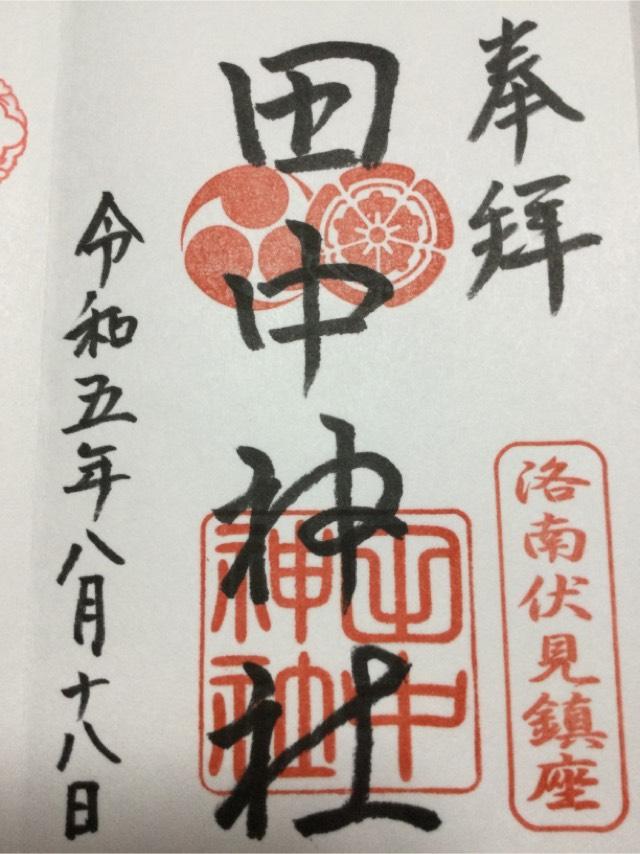 奉拝
洛南伏見鎮座
田中神社
田中神社
令和五年八月十八日